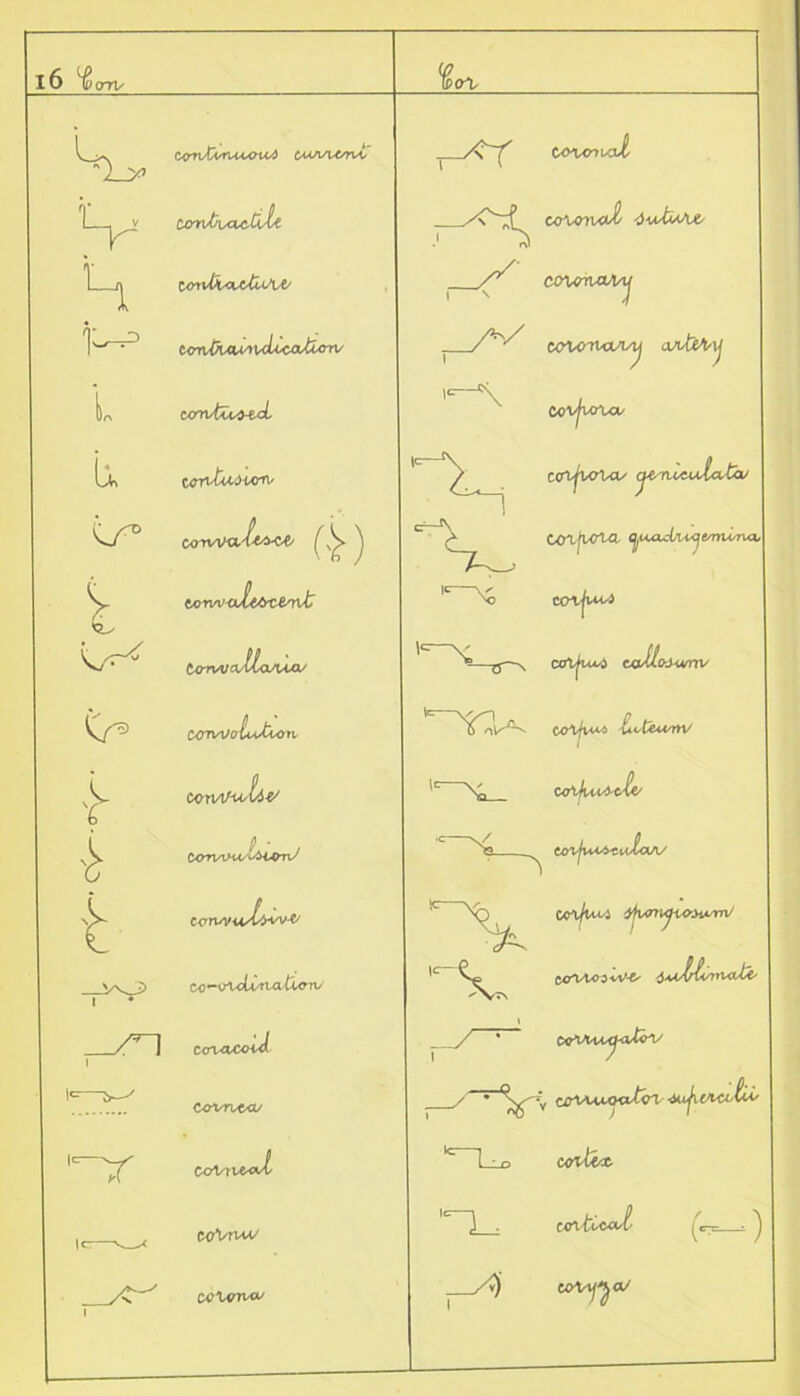 16 Con
continuous current
contractile
contracture
contraindication
contused
contusion
convalesce
convalescent
convallaria
convolution
convulse
convulsion
convulsive
co-ordination
coracoid
cornea
corneal
cornu
corona
Cor
coronal
coronal suture
coronary
coronary artery
corpora
corpora geniculata
corpora quadrigemina
corpus
corpus callosum
corpus luteum
corpuscle
corpuscular
corpus spongiosum
corrosive sublimate
corrugator
corrugator supercilii
cortex
cortical
coryza